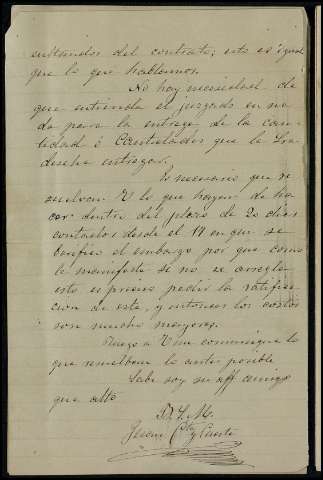 sultandos del contrato; esto es igual
que lo que hablamos.
No hay necesidad de
que entienda el juzgado en na
da para la entrega de la can
tidad ó cantidades que la Sra
desea entregar.
Es necesario que re
suelvan V. lo que hayan de ha
cer dentro del plazo de 20 dias
contados desde el 17 en que se
verificó el embargo por que como
le manifesté si no se arregla
esto es preciso pedir la ratifi
cacion de este, y entonces los costos
son mucho mayores.
Ruego á V. me comunique lo
que resuelvan lo antes posible
Sabe soy su aff amigo
que atto
B. S. M.